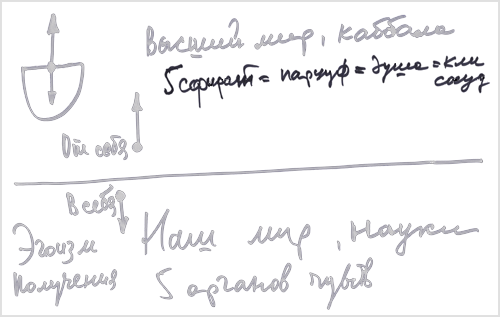 Высший мир, каббала
5 сфирот = парцуф = душа = кли
сосуд
От себя
В себя
Эгоизм
Получения
Наш мир, науки
5 органов чувств